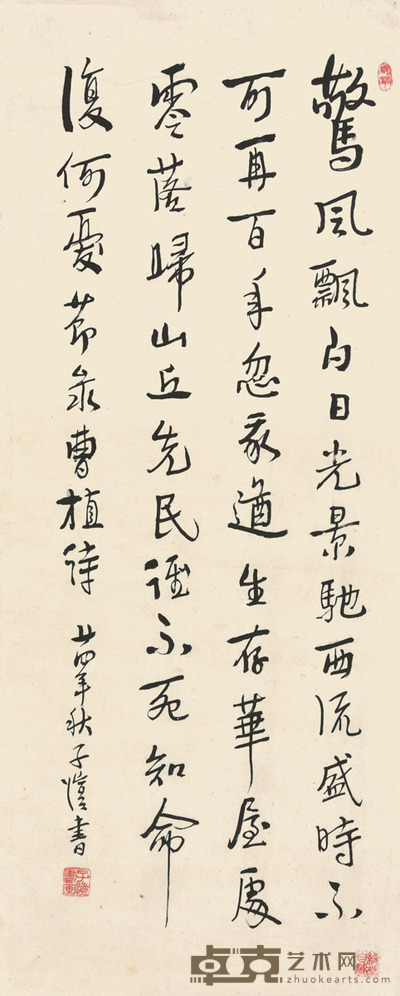 驚風飄白日光景馳西流盛時不
可再百年忽我遒生存華屋處
零落歸山丘先民誰不死知命
復何憂節錄曹植詩
廿四年秋子愷書
卓克艺术网
www.zhuokearts.com